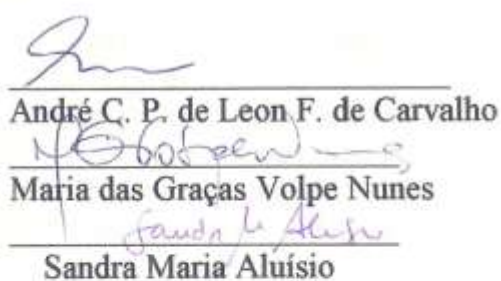 André C. P. de Leon F. de Carvalho
Maria das Graças Volpe Nunes
Sandra M Aluísio
Sandra Maria Aluísio